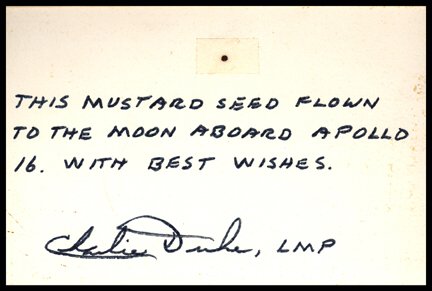 THIS MUSTARD SEED FLOWN
TO THE MOON ABOARD APOLLO
16. WITH BEST WISHES.
Charlie Duke, LMP